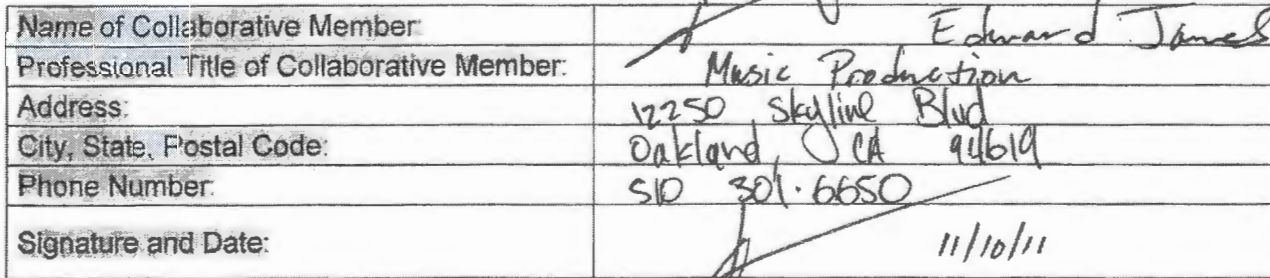 Name of Collaborative Member: Edward James
Professional Title of Collaborative Member: Music Production
Address: 12250 Skyline Blvd
City, State, Postal Code: Oakland, CA 94619
Phone Number: 510 301.6650
Signature and Date: 11/10/11